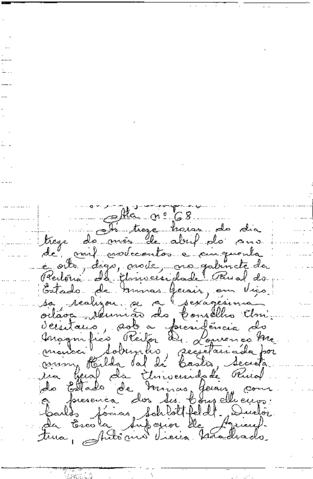 Ata nº 68
Às treze horas do dia
treze do mês de abril do ano
de mil novecentos e cinquenta
e oito, digo, nove, no gabinete da
Reitoria da Universidade Rural do
Estado de Minas Gerais, em Viço
sa realizou-se a sexagésima
oitava reunião do Conselho Uni
versitário, sob a presidência do
Magnífico Reitor Dr. Lourenço Me
nicucci Sobrinho, secretariada por
mim Hilda Val de Castro, Secretá
ria Geral da Universidade Rural
do Estado de Minas Gerais, com
a presença dos srs. Conselheiros:
Carlos Sclottfeldt, Diretor
da Escola Superior de Agricul
tura, Antônio Vieira Machado.